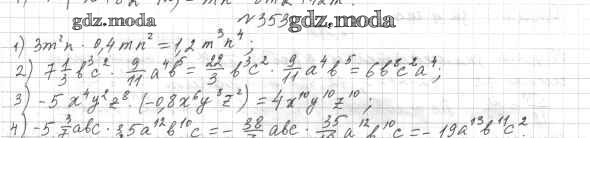 gdz.moda
№353 gdz.moda
1) 3m²n · 0,4mn² = 1,2m³n⁴;
2) 7 1/3 b³c² · 9/11 a⁴b⁵ = 22/3 b³c² · 9/11 a⁴b⁵ = 6b⁸c²a⁴;
3) -5x⁴y²z⁸ · (-0,8x⁶y⁸z²) = 4x¹⁰y¹⁰z¹⁰;
4) -5 3/7 abc · 35a¹²b¹⁰c = - 38/7 abc · 35 a¹²b¹⁰c = -19a¹³b¹¹c².